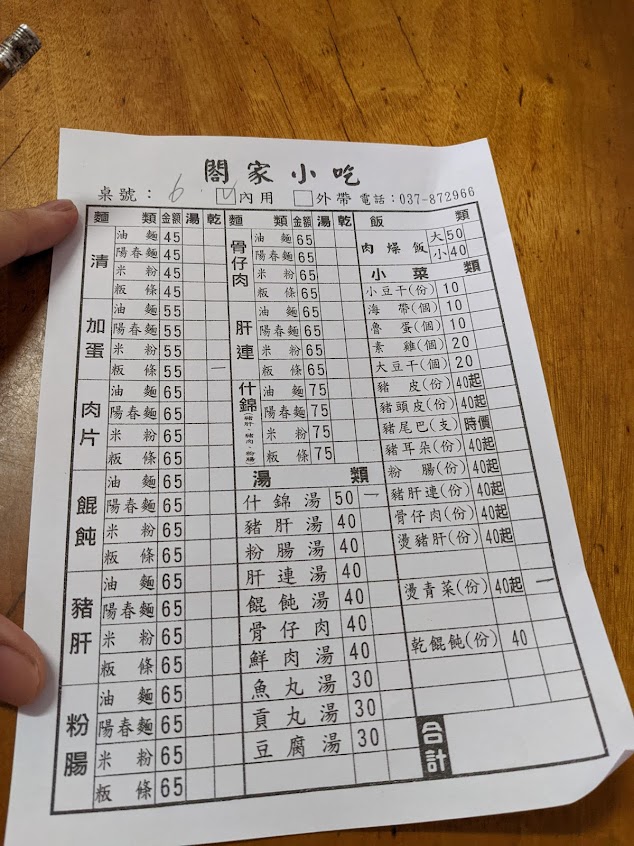 閤家小吃
桌號：6 ✓內用 □外帶 電話：037-872966
麵類 金額 湯 乾
清
油麵 45
陽春麵 45
米粉 45
粄條 45
加蛋
油麵 55
陽春麵 55
米粉 55
粄條 55 一
肉片
油麵 65
陽春麵 65
米粉 65
粄條 65
餛飩
油麵 65
陽春麵 65
米粉 65
粄條 65
豬肝
油麵 65
陽春麵 65
米粉 65
粄條 65
粉腸
油麵 65
陽春麵 65
米粉 65
粄條 65
麵類 金額 湯 乾
骨仔肉
油麵 65
陽春麵 65
米粉 65
粄條 65
肝連
油麵 65
陽春麵 65
米粉 65
粄條 65
什錦(豬肝、豬肉、粉腸)
油麵 75
陽春麵 75
米粉 75
粄條 75
湯類
什錦湯 50 一
豬肝湯 40
粉腸湯 40
肝連湯 40
餛飩湯 40
骨仔肉 40
鮮肉湯 40
魚丸湯 30
貢丸湯 30
豆腐湯 30
飯類
肉燥飯 大 50
小 40
小菜類
小豆干(份) 10
海帶(個) 10
魯蛋(個) 10
素雞(個) 20
大豆干(個) 20
豬皮(份) 40起
豬頭皮(份) 40起
豬尾巴(支) 時價
豬耳朵(份) 40起
粉腸(份) 40起
豬肝連(份) 40起
骨仔肉(份) 40起
燙豬肝(份) 40起
燙青菜(份) 40起 一
乾餛飩(份) 40
合計